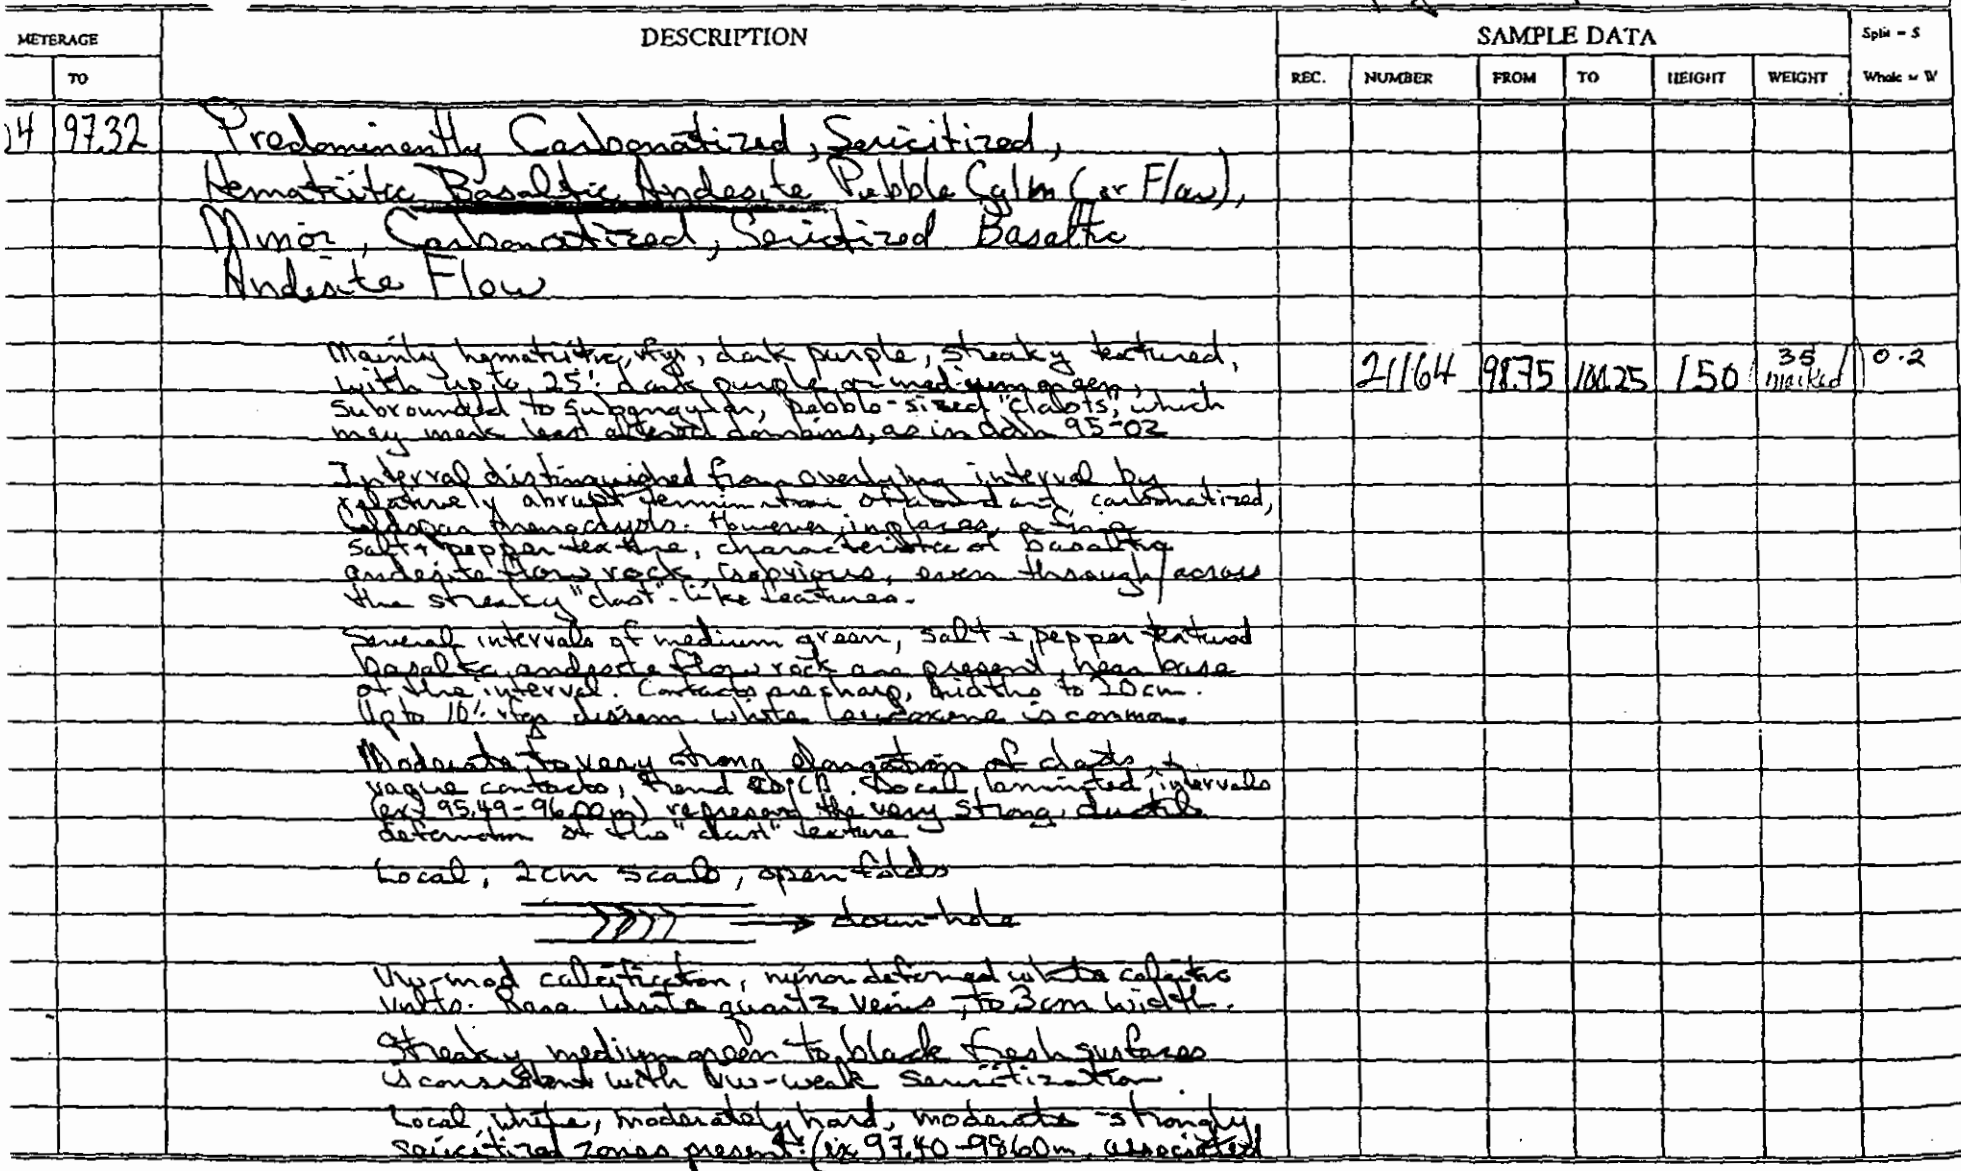 METERAGE
DESCRIPTION
SAMPLE DATA
Split = S
TO
REC.
NUMBER
FROM
TO
HEIGHT
WEIGHT
Whole = W
4 97.32 Predominently Carbonatized, Sericitized,
Hematitic Basaltic Andesite Pebble Cglm (or Flow),
Minor, Carbonatized, Sericitized Basaltic
Andesite Flow
Mainly hematitic, vfgr, dark purple, streaky textured,
21164 98.75 100.25 150 35 marked 0.2
with up to 25% dark purple or medium green,
subrounded to subangular, pebble-sized "clasts", which
may mark least altered domains, as in ddh 95-02
Interval distinguished from overlying interval by
relatively abrupt termination of abundant, carbonatized,
feldspar phenocrysts. However, in places, a fine
salt + pepper texture, characteristic of basaltic
andesite flow rock, is obvious, even through/across
the streaky "clast"-like features.
Several intervals of medium green, salt + pepper textured
basaltic andesite flow rock are present, near base
of the interval. Contacts are sharp, widths to 20cm.
Up to 10% vfgr dissem white leucoxene is common.
Moderate to very strong elongation of clasts, +
vague contacts, trend CA. Local, laminated, intervals
(ex 95.49-96.00m) represent the very strong, ductile
deformation of the "clast" texture.
Local, 2cm scale, open folds
down-hole
Vw-mod calcification, minor deformed white calcite
vnlts. Rare white quartz veins, to 3cm width.
Streaky medium green to black fresh surfaces
is consistent with vw-weak sericitization.
Local, white, moderately hard, moderate-strongly
sericitized zones present (ex 97.40-98.60m, associated